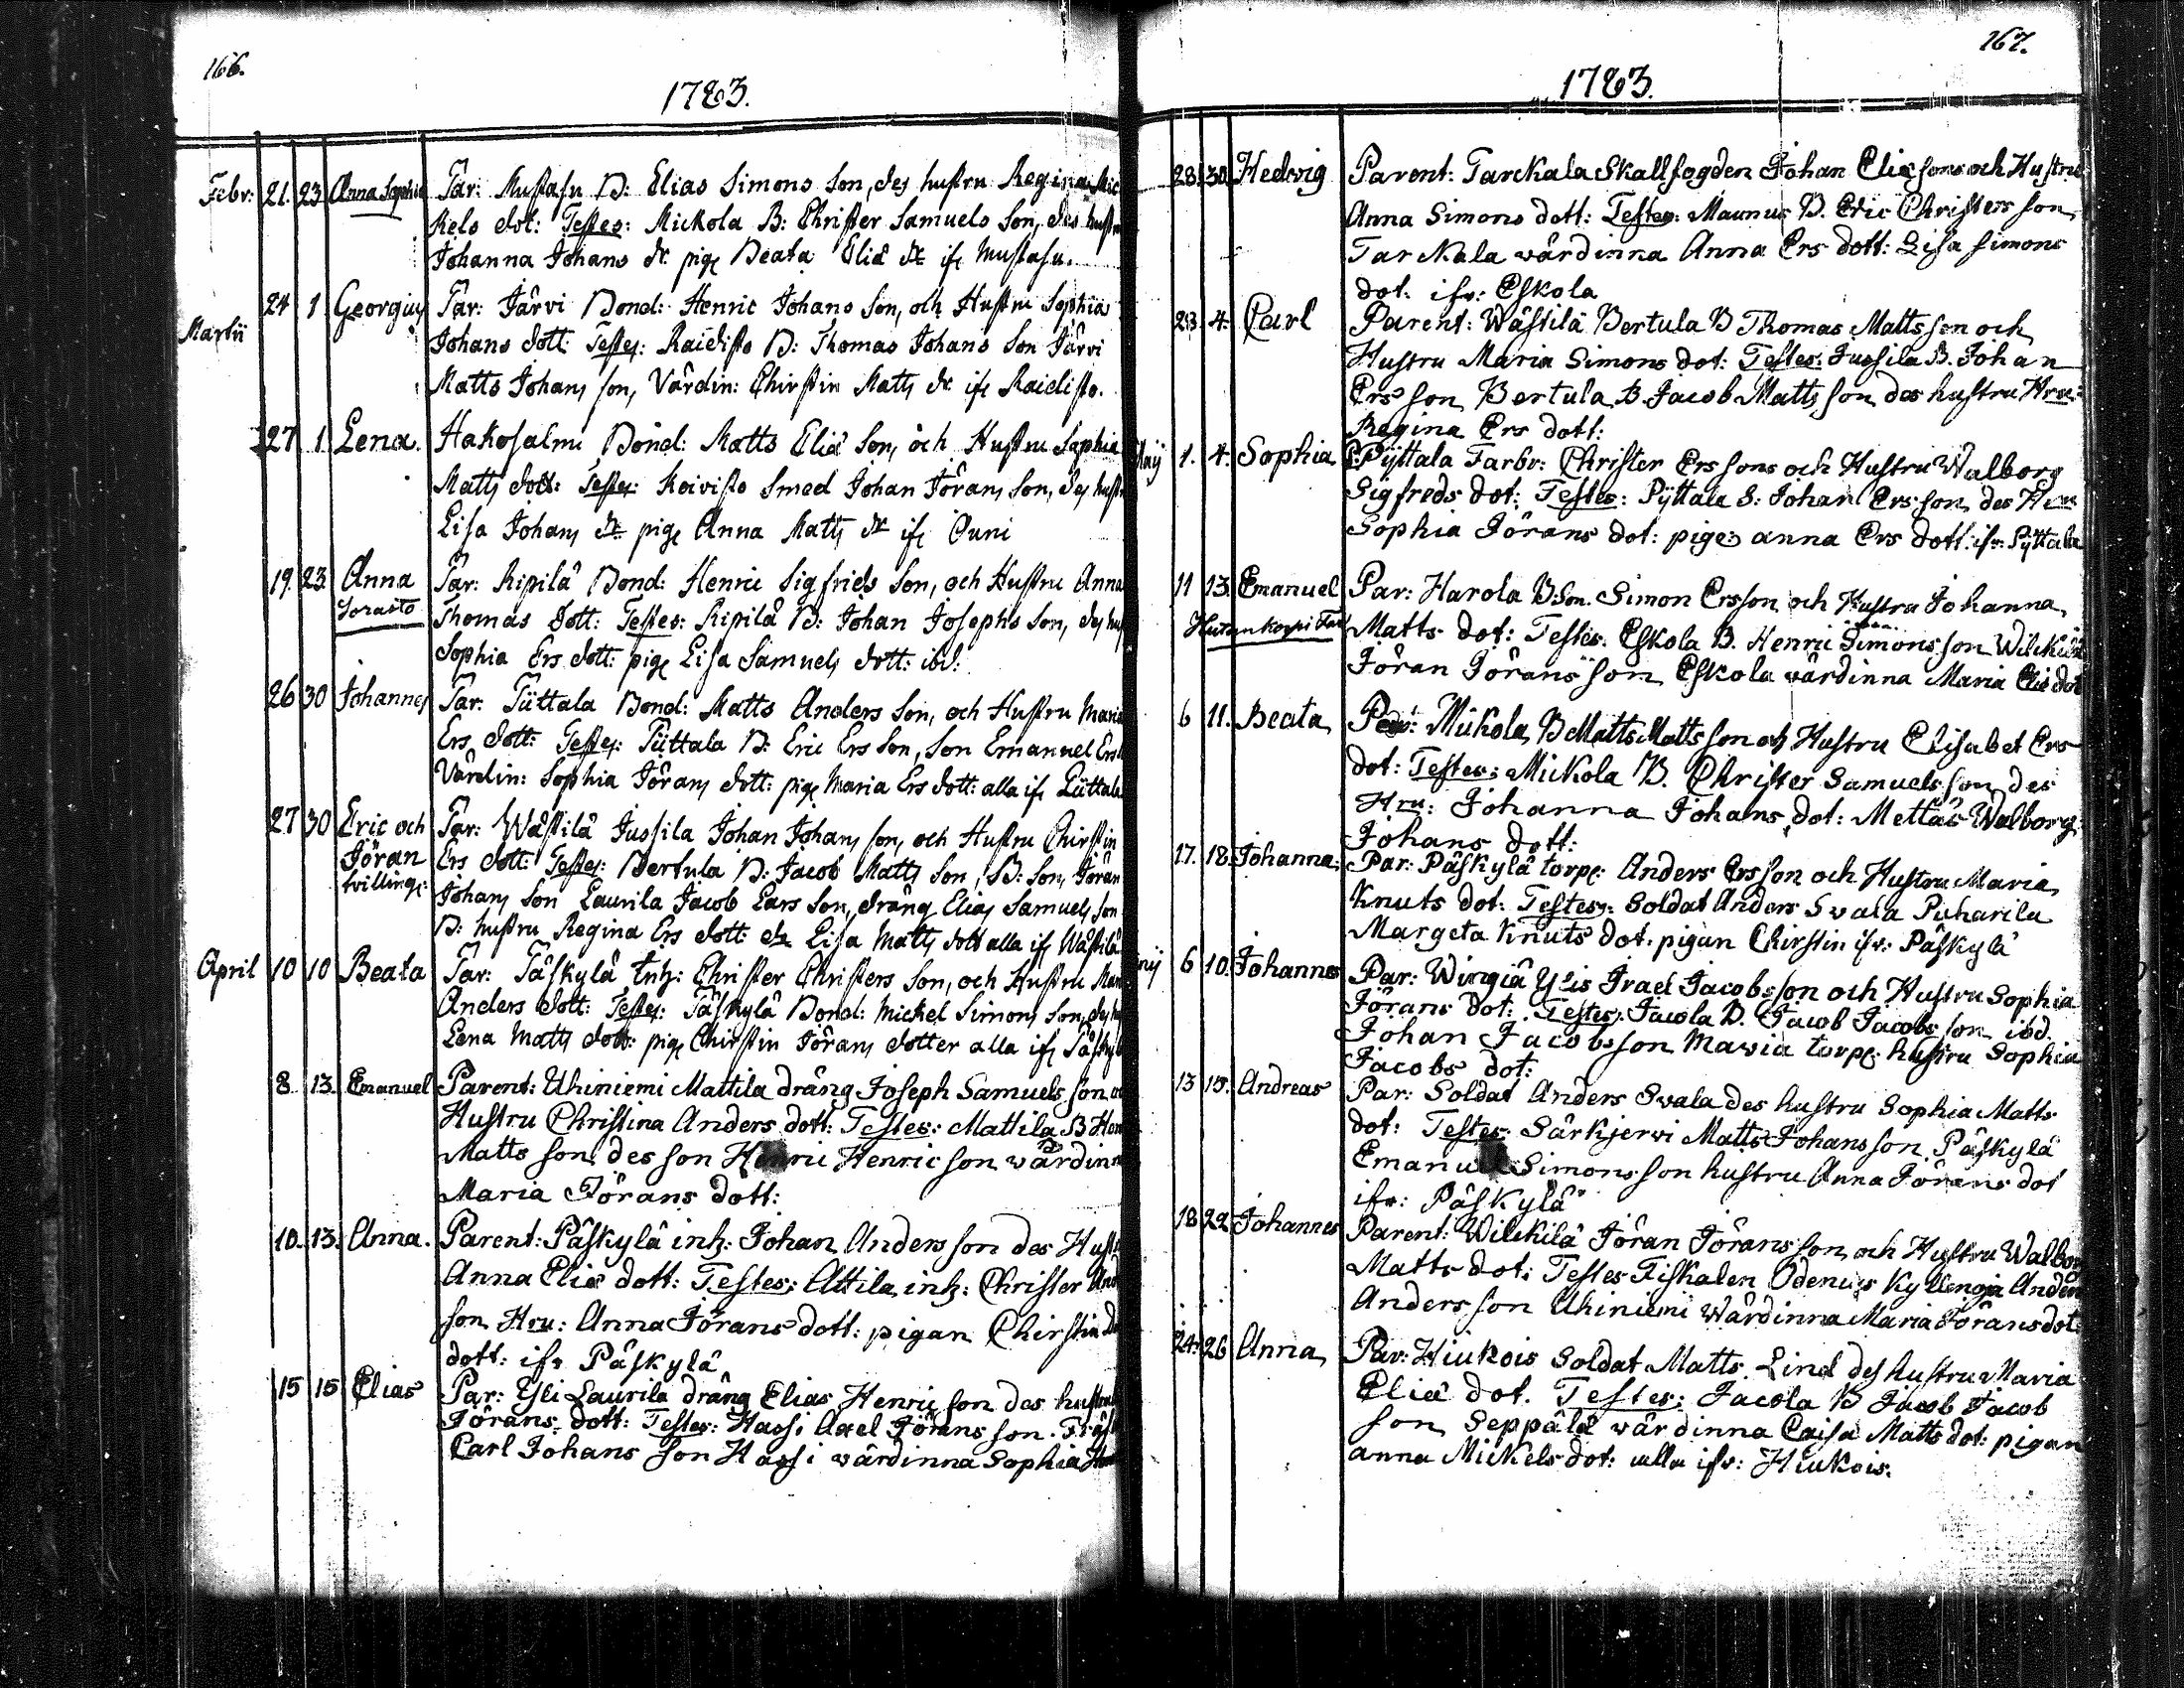 166.
1783.
Febr: 21. 23 Anna Sophia Par: Mustasu B: Elias Simons Son, des hustru Regina Mic
kels dot: Testes: Mickola B: Christer Samuels Son, des hustru
Johanna Johans dr pig Beata Eliæ dr ifr Mustasu.
24 1 Georgius Par: Järvi Bond: Henric Johans Son, och Hustru Sophia
Martii Johans dott: Testes: Raidisto B: Thomas Johans Son Järvi
Matts Johans son, Värdin: Chirstin Matts dr ifr Raidisto.
27 1 Lena. Hakosalmi Bond: Matts Eliæ Son, och Hustru Sophia
Matts dott: Testes: Koivisto Smed Johan Jörans Son, des hustr
Lisa Johans dr pig Anna Matts dr ifr Ouni
19. 23. Anna Par: Ripilä Bond: Henric Sigfrids Son, och Hustru Anna
Sorasto Thomas dott: Testes: Ripilä B: Johan Josephs Son, des hu
Sophia Ers dott: pig Lisa Samuels dott: ibd:
26 30 Johannes Par: Püttala Bond: Matts Anders Son, och Hustru Maria
Ers dott: Testes: Püttala B: Eric Ers Son, Son Emanuel Ers
Värdin: Sophia Jörans dott: pig Maria Ers dott: alla ifr Püttala
27 30 Eric och Par: Wästilä Jussila Johan Johans son, och Hustru Chirstin
Jöran Ers dott: Testes: Bertula B: Jacob Matts Son, B: Son, Jöran
tvillingr: Johans Son Laurila Jacob Lars Son, dräng Elias Samuels Son
B: hustru Regina Ers dott: dr Lisa Matts dott alla ifr Wästilä
April 10 10 Beata Par: Päskylä Inh: Christer Christers Son, och Hustru Mar
Anders dott: Testes: Päskylä Bond: Mickel Simons Son, des hu
Lena Matts dott: pig Chirstin Jörans dotter alla ifr Päskyl
8 13. Emanuel Parent: Uhiniemi Mattila dräng Joseph Samuels son o
Hustru Christina Anders dott: Testes: Mattila B Hen
Matts son des son Henric Henric son wärdinn
Maria Jörans dott:
10. 13. Anna. Parent: Päskylä inh: Johan Anders son des Hust
Anna Eliæ dott: Testes: Attila inh: Christer And
son Hru: Anna Jörans dott: pigan Chirstin
dott: ifr Päskylä
15 15 Elias Par: Yli Laurila dräng Elias Henric son des hustru
Jörans dott: Testes: Hassi Axel Jörans son.
Carl Johans son Hassi wärdinna Sophia
167.
1783.
28. 30. Hedwig Parent: Tarckala Skallfogden Johan Eliæ son och Hustru
Anna Simons dott: Testes: Maunus B. Eric Christers son
Tarckala wärdinna Anna Ers dott: Lisa Simons
dot: ifr: Eskola
23. 4. Carl Parent: Wästilä Bertula B Thomas Matts son och
Hustru Maria Simons dot: Testes: Jussila B. Johan
Ers son Bertula B. Jacob Matts son des hustru Hru:
Regina Ers dott:
Maij 1. 4. Sophia P: Pyttala Farbr: Christer Ers sons och Hustru Walborg
Sigfreds dot: Testes: Pyttala S: Johan Ers son des Hru
Sophia Jörans dot: pige: anna Ers dott: ifr: Pyttala
11 13. Emanuel Par: Harola B:Son. Simon Ersson och Hustru Johanna
Matts dot: Testes. Eskola B. Henric Simons son Wilckilä
Jöran Jörans son Eskola wärdinna Maria Eliæ dot
6 11. Beata Par: Mickola B Matts Matts son och Hustru Elisabet Ers
dot: Testes: Mickola B. Christer Samuels son des
Hru: Johanna Johans dot: Mettäs Walborg
Johans dott:
17. 18. Johanna: Par: Päskylä torp: Anders Ersson och Hustru Maria
Knuts dot: Testes: Soldat Anders Svala Puharila
Margeta Knuts dot: pigan Chirstin ifr: Päskylä
6 10. Johannes Par: Wirgiä Ylis Israel Jacobs son och Hustru Sophia
Jörans dot: Testes: Jacola B. Jacob Jacobs son ibd.
Johan Jacobs son Mawia torp: hustru Sophia
Jacobs dot:
13 15. Andreas Par: Soldat Anders Svala des hustru Sophia Matts
dot: Testes: Särkjerwi Matts Johans son Päskylä
Emanuel Simons son hustru Anna Jörans dot
ifr: Päskylä
18 22. Johannes Parent: Wilckilä Jöran Jörans son och Hustru Walbor
Matts dot: Testes Fiskalen Odenius Kyllenoja Anders
Anders son Uhiniemi Wärdinna Maria Jörans dot:
24. 26 Anna Par: Hiukois Soldat Matts Lind des hustru Maria
Eliæ dot. Testes: Jacola B Jacob Jacob
son Seppälä wärdinna Caisa Matts dot: pigan
anna Mickels dot: alla ifr: Hiukois.